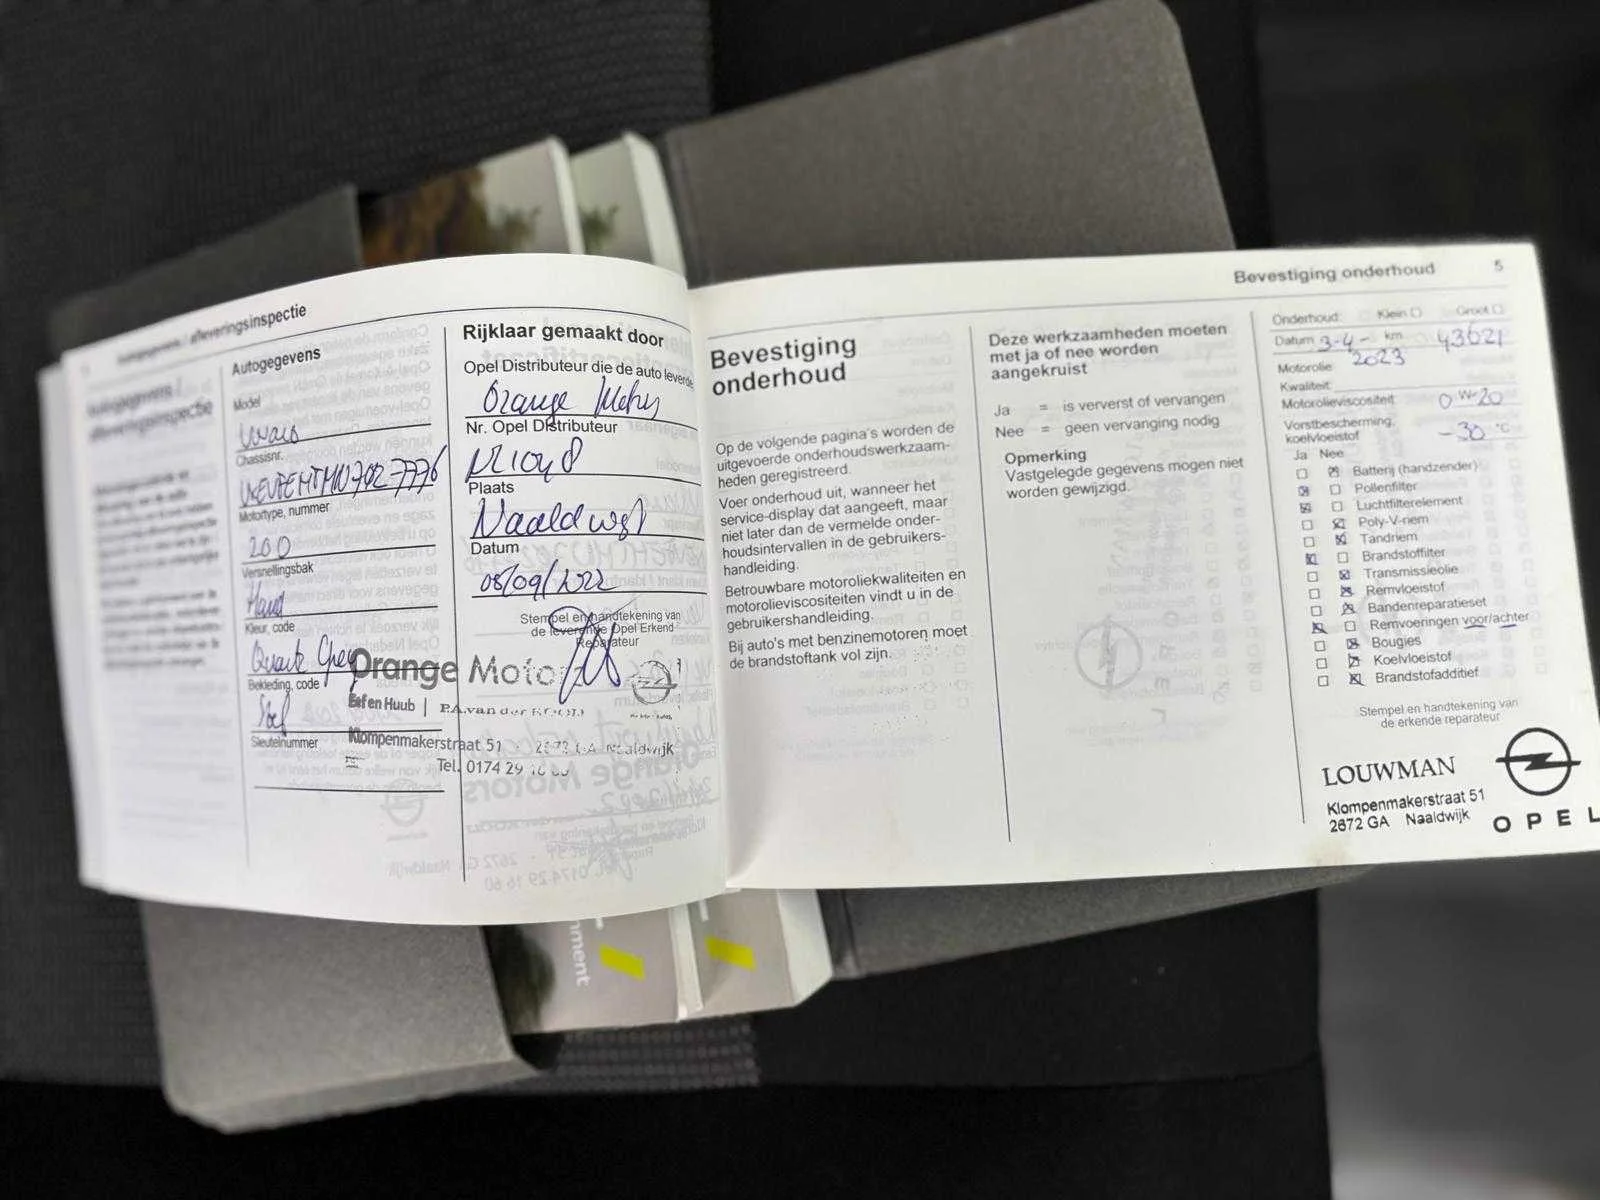 afleveringsinspectie
Autogegevens
Model
Vivaro
Chassisnr.
Motortype, nummer
200
Versnellingsbak
Hand
Kleur, code
Quartz Grey
Bekleding, code
Stof
Sleutelnummer
Rijklaar gemaakt door
Opel Distributeur die de auto leverde
Orange Motors
Nr. Opel Distributeur
Plaats
Naaldwijk
Datum
08/09/2022
Stempel en handtekening van
de leverende Opel Erkend
Reparateur
Orange Motors
Eef en Huub | P.A. van der
Klompenmakerstraat 51 · 2672 GA Naaldwijk
Tel. 0174 29 16 60
Bevestiging onderhoud 5
Bevestiging
onderhoud
Op de volgende pagina's worden de
uitgevoerde onderhoudswerkzaam-
heden geregistreerd.
Voer onderhoud uit, wanneer het
service-display dat aangeeft, maar
niet later dan de vermelde onder-
houdsintervallen in de gebruikers-
handleiding.
Betrouwbare motoroliekwaliteiten en
motorolieviscositeiten vindt u in de
gebruikershandleiding.
Bij auto's met benzinemotoren moet
de brandstoftank vol zijn.
Deze werkzaamheden moeten
met ja of nee worden
aangekruist
Ja = is ververst of vervangen
Nee = geen vervanging nodig
Opmerking
Vastgelegde gegevens mogen niet
worden gewijzigd.
Onderhoud: Klein Groot
Datum 3-4-2023 km 43621
Motorolie
Kwaliteit:
Motorolieviscositeit 0 W-20
Vorstbescherming,
koelvloeistof -30 °C
Ja Nee
Batterij (handzender)
Pollenfilter
Luchtfilterelement
Poly-V-riem
Tandriem
Brandstoffilter
Transmissieolie
Remvloeistof
Bandenreparatieset
Remvoeringen voor/achter
Bougies
Koelvloeistof
Brandstofadditief
Stempel en handtekening van
de erkende reparateur
LOUWMAN
Klompenmakerstraat 51
2672 GA Naaldwijk
OPEL